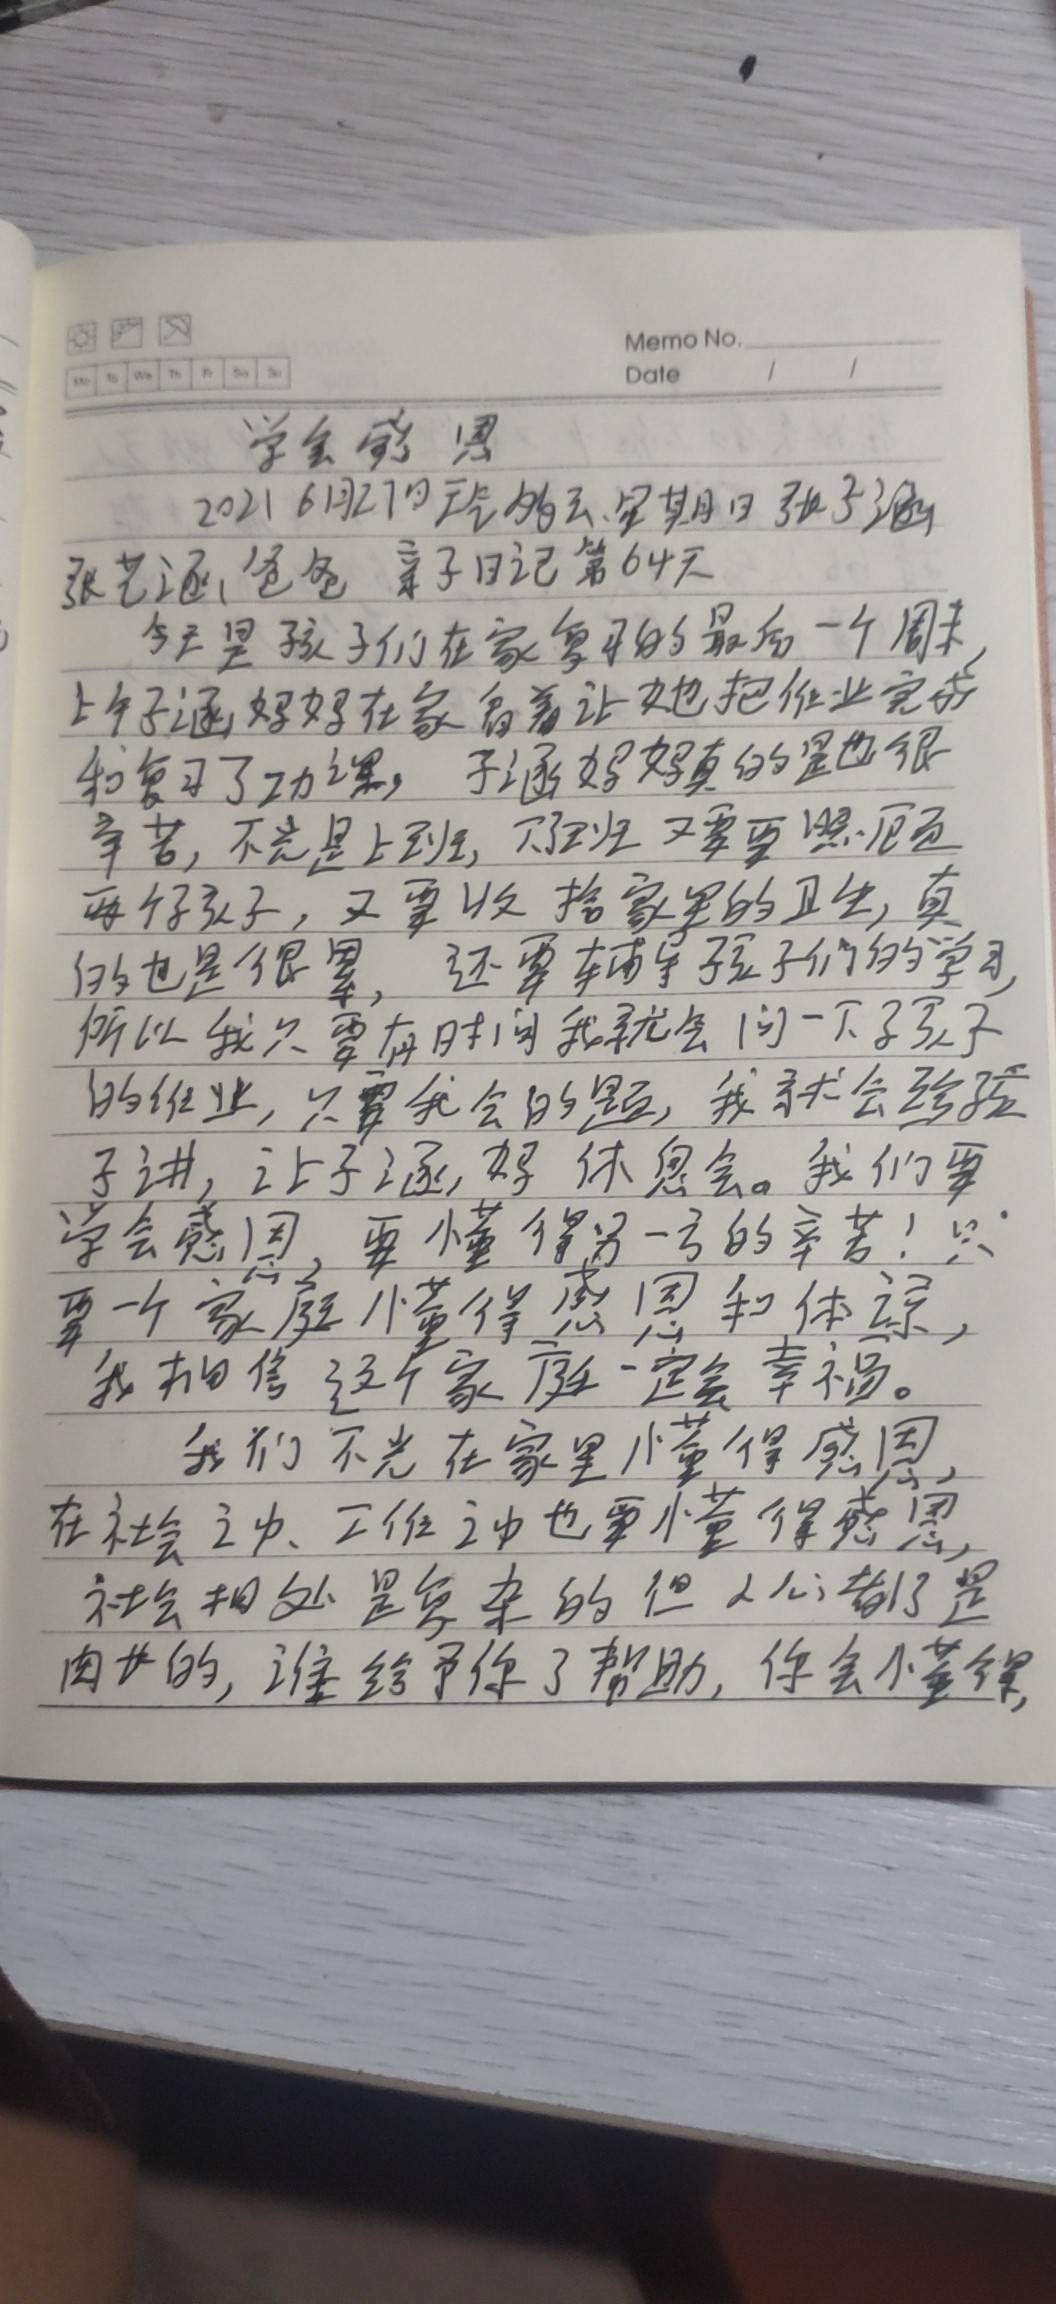 Memo No.
Mo Tu We Th Fr Sa Su
Date / /
学会感恩
2021 6月27日 星期日 张子涵
张艺涵、爸爸 亲子日记 第64天
今天是孩子们在家复习的最后一个周末,
上午子涵妈妈在家看着让她把作业完成
和复习了功课, 子涵妈妈真的是也很
辛苦, 不光是上班, 下班 又要要照顾
两个孩子, 又要收拾家里的卫生, 真
的也是很累, 还要辅导孩子们的学习,
所以我只要有时间我就会问一下孩子
的作业, 只要我会的题, 我就会给孩
子讲, 让子涵妈休息会。我们要
学会感恩, 要懂得另一方的辛苦! 只
要一个家庭懂得感恩和体谅,
我相信这个家庭一定会幸福。
我们不光在家里懂得感恩,
在社会之中、工作之中也要懂得感恩,
社会相处是复杂的但人心都是
肉长的, 谁给予你了帮助, 你会懂得,